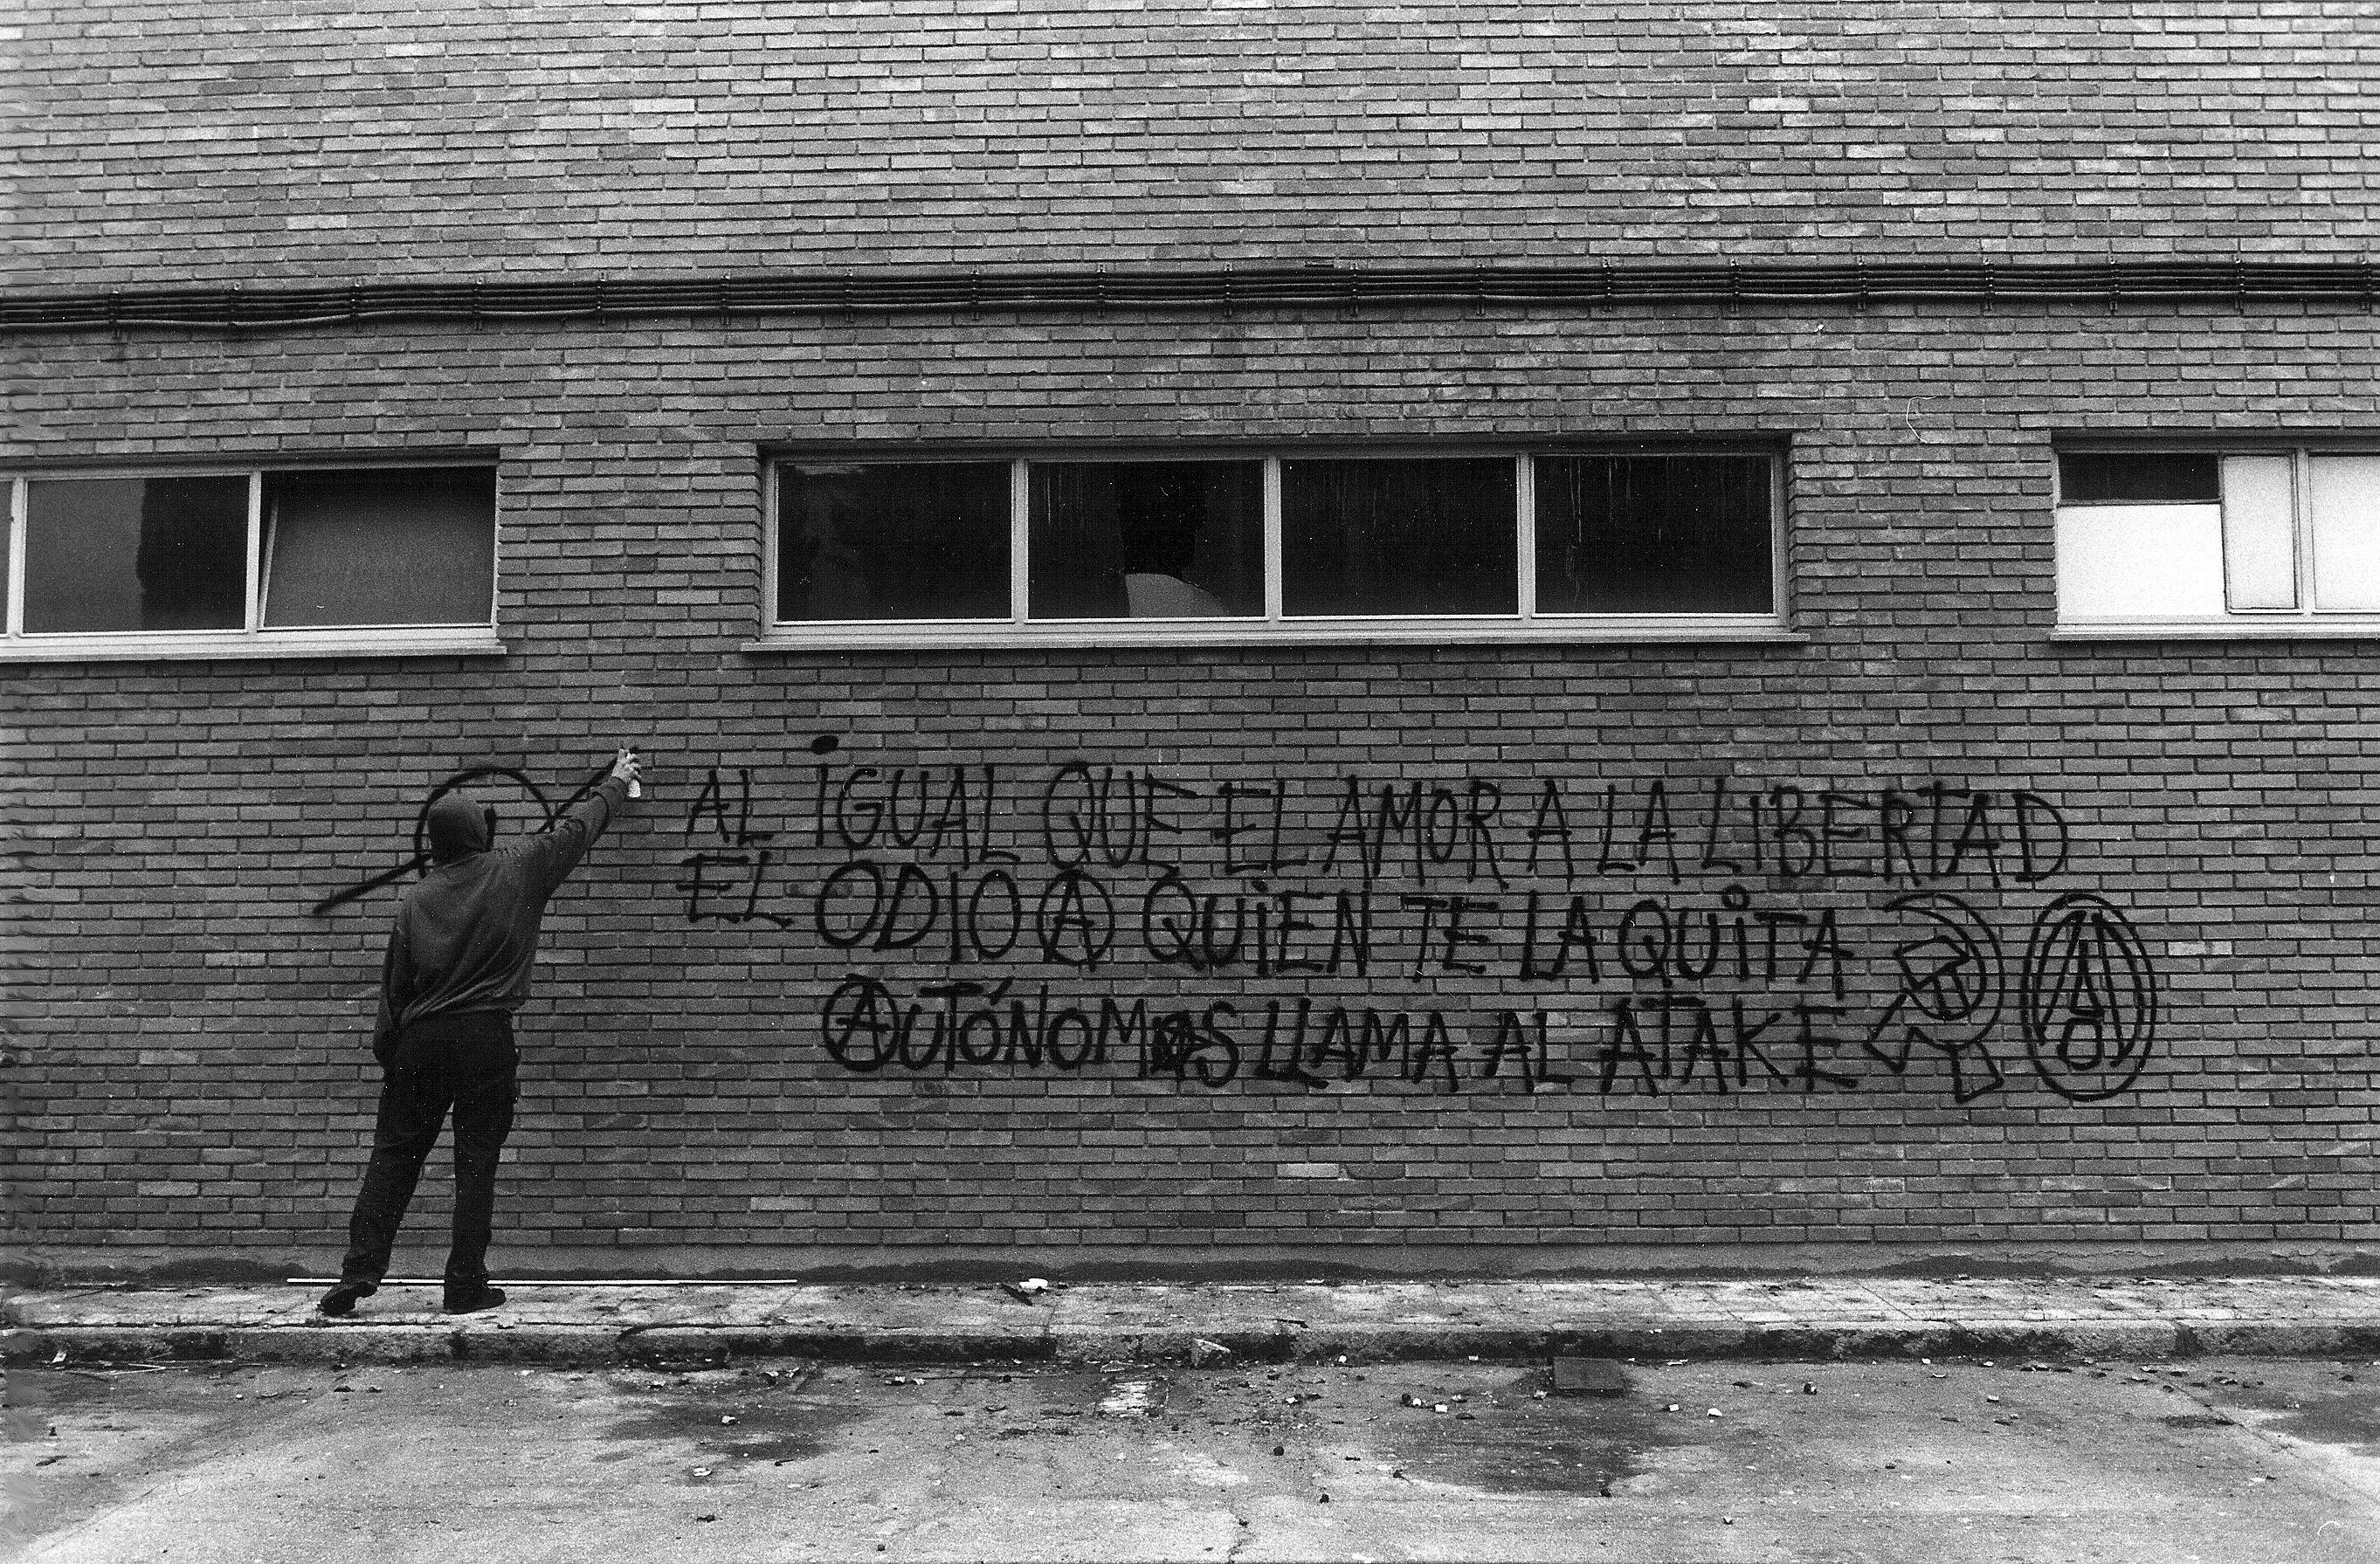 AL iGUAL QUE EL AMOR A LA LiBERTAD
EL ODIO A QUiEN TE LA QUiTA
AUTÓNOMAS LLAMA AL ATAKE